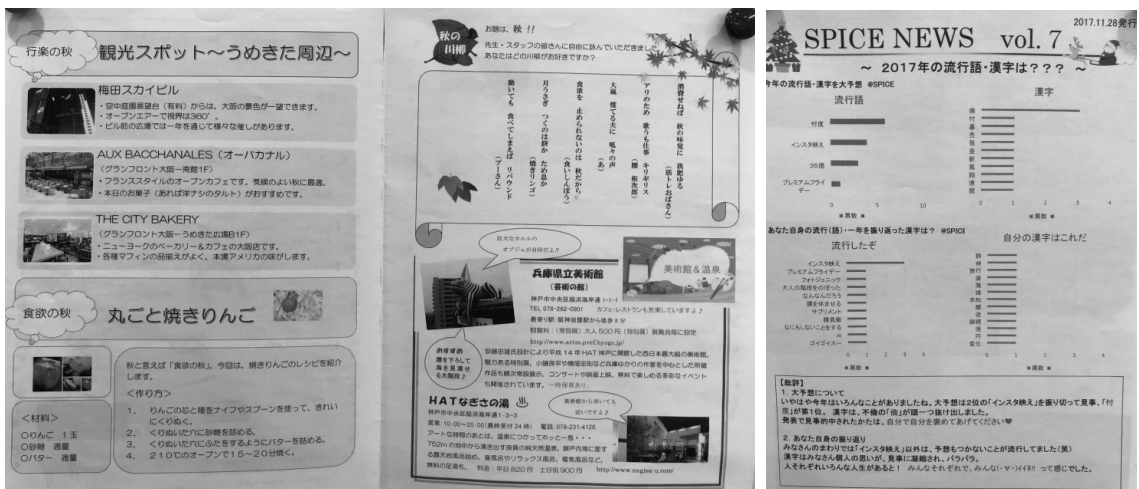 行楽の秋
観光スポット～うめきた周辺～
梅田スカイビル
・空中庭園展望台(有料)からは、大阪の景色が一望できます。
・オープンエアーで視界は360°。
・ビル前の広場では一年を通じて様々な催しがあります。
AUX BACCHANALES(オーバカナル)
(グランフロント大阪ー南館1F)
・フランススタイルのオープンカフェです。気候のよい秋に最適。
・本日のお菓子(あれば洋ナシのタルト)がおすすめです。
THE CITY BAKERY
(グランフロント大阪ーうめきた広場B1F)
・ニューヨークのベーカリー&カフェの大阪店です。
・各種マフィンの品揃えがよく、本場アメリカの味がします。
食欲の秋
丸ごと焼きりんご
<材料>
○りんご 1玉
○砂糖 適量
○バター 適量
秋と言えば「食欲の秋」今回は、焼きりんごのレシピを紹介
します。
<作り方>
1. りんごの芯と種をナイフやスプーンを使って、きれい
にくりぬく。
2. くりぬいた穴に砂糖を詰める。
3. くりぬいた穴にふたをするようにバターを詰める。
4. 210℃のオーブンで15~20分焼く。
秋の
川柳
お題は、秋!!
先生・スタッフの皆さんに自由に詠んでいただきました
あなたはどの川柳がお好きですか?
消費せねば 秋の味覚に 我肥ゆる
(筋トレおばさん)
アリのため 歌うも仕事 キリギリス
大嵐 慌てる夫に 呱々の声
(あ)
食欲を 止められないのは 秋だから
(食いしんぼう)
月うさぎ つくのは餅か ため息か
(焼きリンゴ)
動いても 食べてしまえば リバウンド
(プーさん)
巨大なカエルの
オブジェが目印だよ!!
美術館&温泉
兵庫県立美術館
(芸術の館)
神戸市中央区脇浜海岸通1-1-1
TEL 078-262-0901 カフェ・レストランも充実していますよ♪
最寄り駅:阪神岩屋駅から徒歩8分
観覧料:(常設展)大人500円(特別展)展覧会毎に設定
http://www.artm.pref.hyogo.jp/
おすすめ
腰を下ろして
海を見渡せ
る大階段♪
安藤忠雄氏設計により平成14年HAT神戸に開館した西日本最大級の美術館。
魅力ある特別展、小磯良平や横尾忠則など兵庫ゆかりの作家を中心とした所蔵
作品も順次常設展示。コンサートや映画上映、無料で楽しめる多彩なイベント
も開催されています。一時保育あり。
HATなぎさの湯
神戸市中央区脇浜海岸通1-3-3
営業:10:00～25:00(最終受付24時) 電話:078-231-4126
美術館から歩いても
近いですよ♪
アートな時間のあとは、温泉につかってホッと一息・・・
752mの地中から湧き出す良質の純天然温泉。瀬戸内海に面す
る露天岩風呂始め、壺風呂やリラックス風呂、電気風呂など。
無料の足湯も。 料金:平日820円 土日祝900円 http://www.nagisa-u.com/
2017.11.28発行
SPICE NEWS vol. 7
～ 2017年の流行語・漢字は??? ～
今年の流行語・漢字を大予想 @SPICE
流行語
忖度
インスタ映え
35億
プレミアムフライ
デー
0 5 10
■票数
漢字
倫
忖
暴
売
飛
金
新
風
翔
億
闇
0 1 2 3 4
■票数
あなた自身の流行(語)・一年を振り返った漢字は? @SPICE
流行したぞ
インスタ映え
プレミアムフライデー
フォトジェニック
大人の階段をのぼった
なんなんだろう
腰を休ませる
サプリメント
睡負債
なにもしないことをする
AI
ゴイゴイスー
0 1 2 3 4
■票数
自分の漢字はこれだ
旅行
未知
変化
0 1 2 3 4
■票数
【総評】
1. 大予想について
いやはや今年はいろんなことがありましたね。大予想は2位の「インスタ映え」を振り切って見事、「忖
度」が第1位。漢字は、不倫の「倫」が頭一つ抜け出しました。
発表で見事的中されたかたは、自分で自分を褒めてあげてください♥
2. あなた自身の振り返り
みなさんのまわりでは「インスタ映え」以外は、予想もつかないことが流行してました(笑)
漢字はみなさん個人の思いが、見事に凝縮され、バラバラ。
人それぞれいろんな人生があると! みんなそれぞれで、みんな(・∀・)イイネ!! って感じでした。